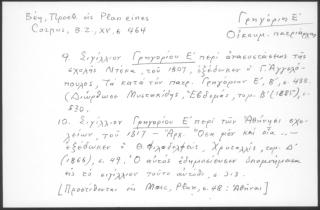 Βέη, Προσθ. εἰς Planeines
Corpus, B.Z., XV, σ. 464
Γρηγόριος Ε΄
Οἰκουμ. πατριάρχης
9. Σιγίλλιον Γρηγορίου Ε΄ περὶ ἀνασυστάσεως τῆς
σχολῆς Ντέκα, τοῦ 1807, ἐξεδόκεν ὁ Γ. Ἀγγελό-
πουλος, Τὰ κατὰ τὸν πατρ. Γρηγόριον Ε΄, Β΄, σ. 458.
(Διώρθωσε Μυστακίδης, Ἑβδομάς, τομ. Β΄ (1885), σ.
530.
10. Σιγίλλιον Γρηγορίου Ε΄ περὶ τῶν Ἀθήνησι σχο-
λείων, τοῦ 1817 – Ἀρχ. Ὅσα μὲν καὶ οἷα ..–
ἐξεδόκεν ὁ Θ. Φιλαδελφεύς, Χρυσαλλίς, τομ. Δ΄
(1866), σ. 49. Ὁ αὐτὸς ἐδημοσίευσεν ὑπομνήματα
εἰς τὸ σιγίλλιον τοῦτο αὐτόθι, σ.
[Προστίθεται εἰς Μαις, Plan, σ. 48: Ἀθῆναι]